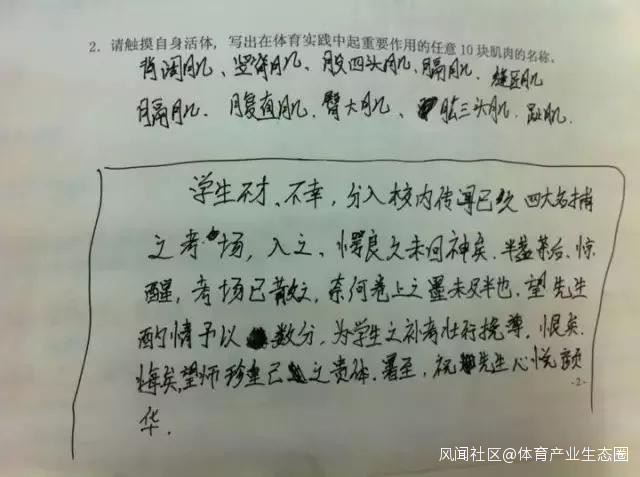 2. 请触摸自身活体，写出在体育实践中起重要作用的任意 10 块肌肉的名称。
背阔肌、竖脊肌、股四头肌、膈肌、缝匠肌
膈肌、腹直肌、臂大肌、肱三头肌、趾肌.
学生不才、不幸，分入校内传闻已久 四大名捕
之考场，入之、愕良久未回神矣. 半盏茶后. 惊
醒，考场已散，奈何卷上之墨未及半也. 望先生
酌情予以 数分，为学生之补考壮行挽 恨矣.
悔矣，望师珍重已之贵体. 暑至，祝先生心悦颜
华.
-2-
风闻社区@体育产业生态圈